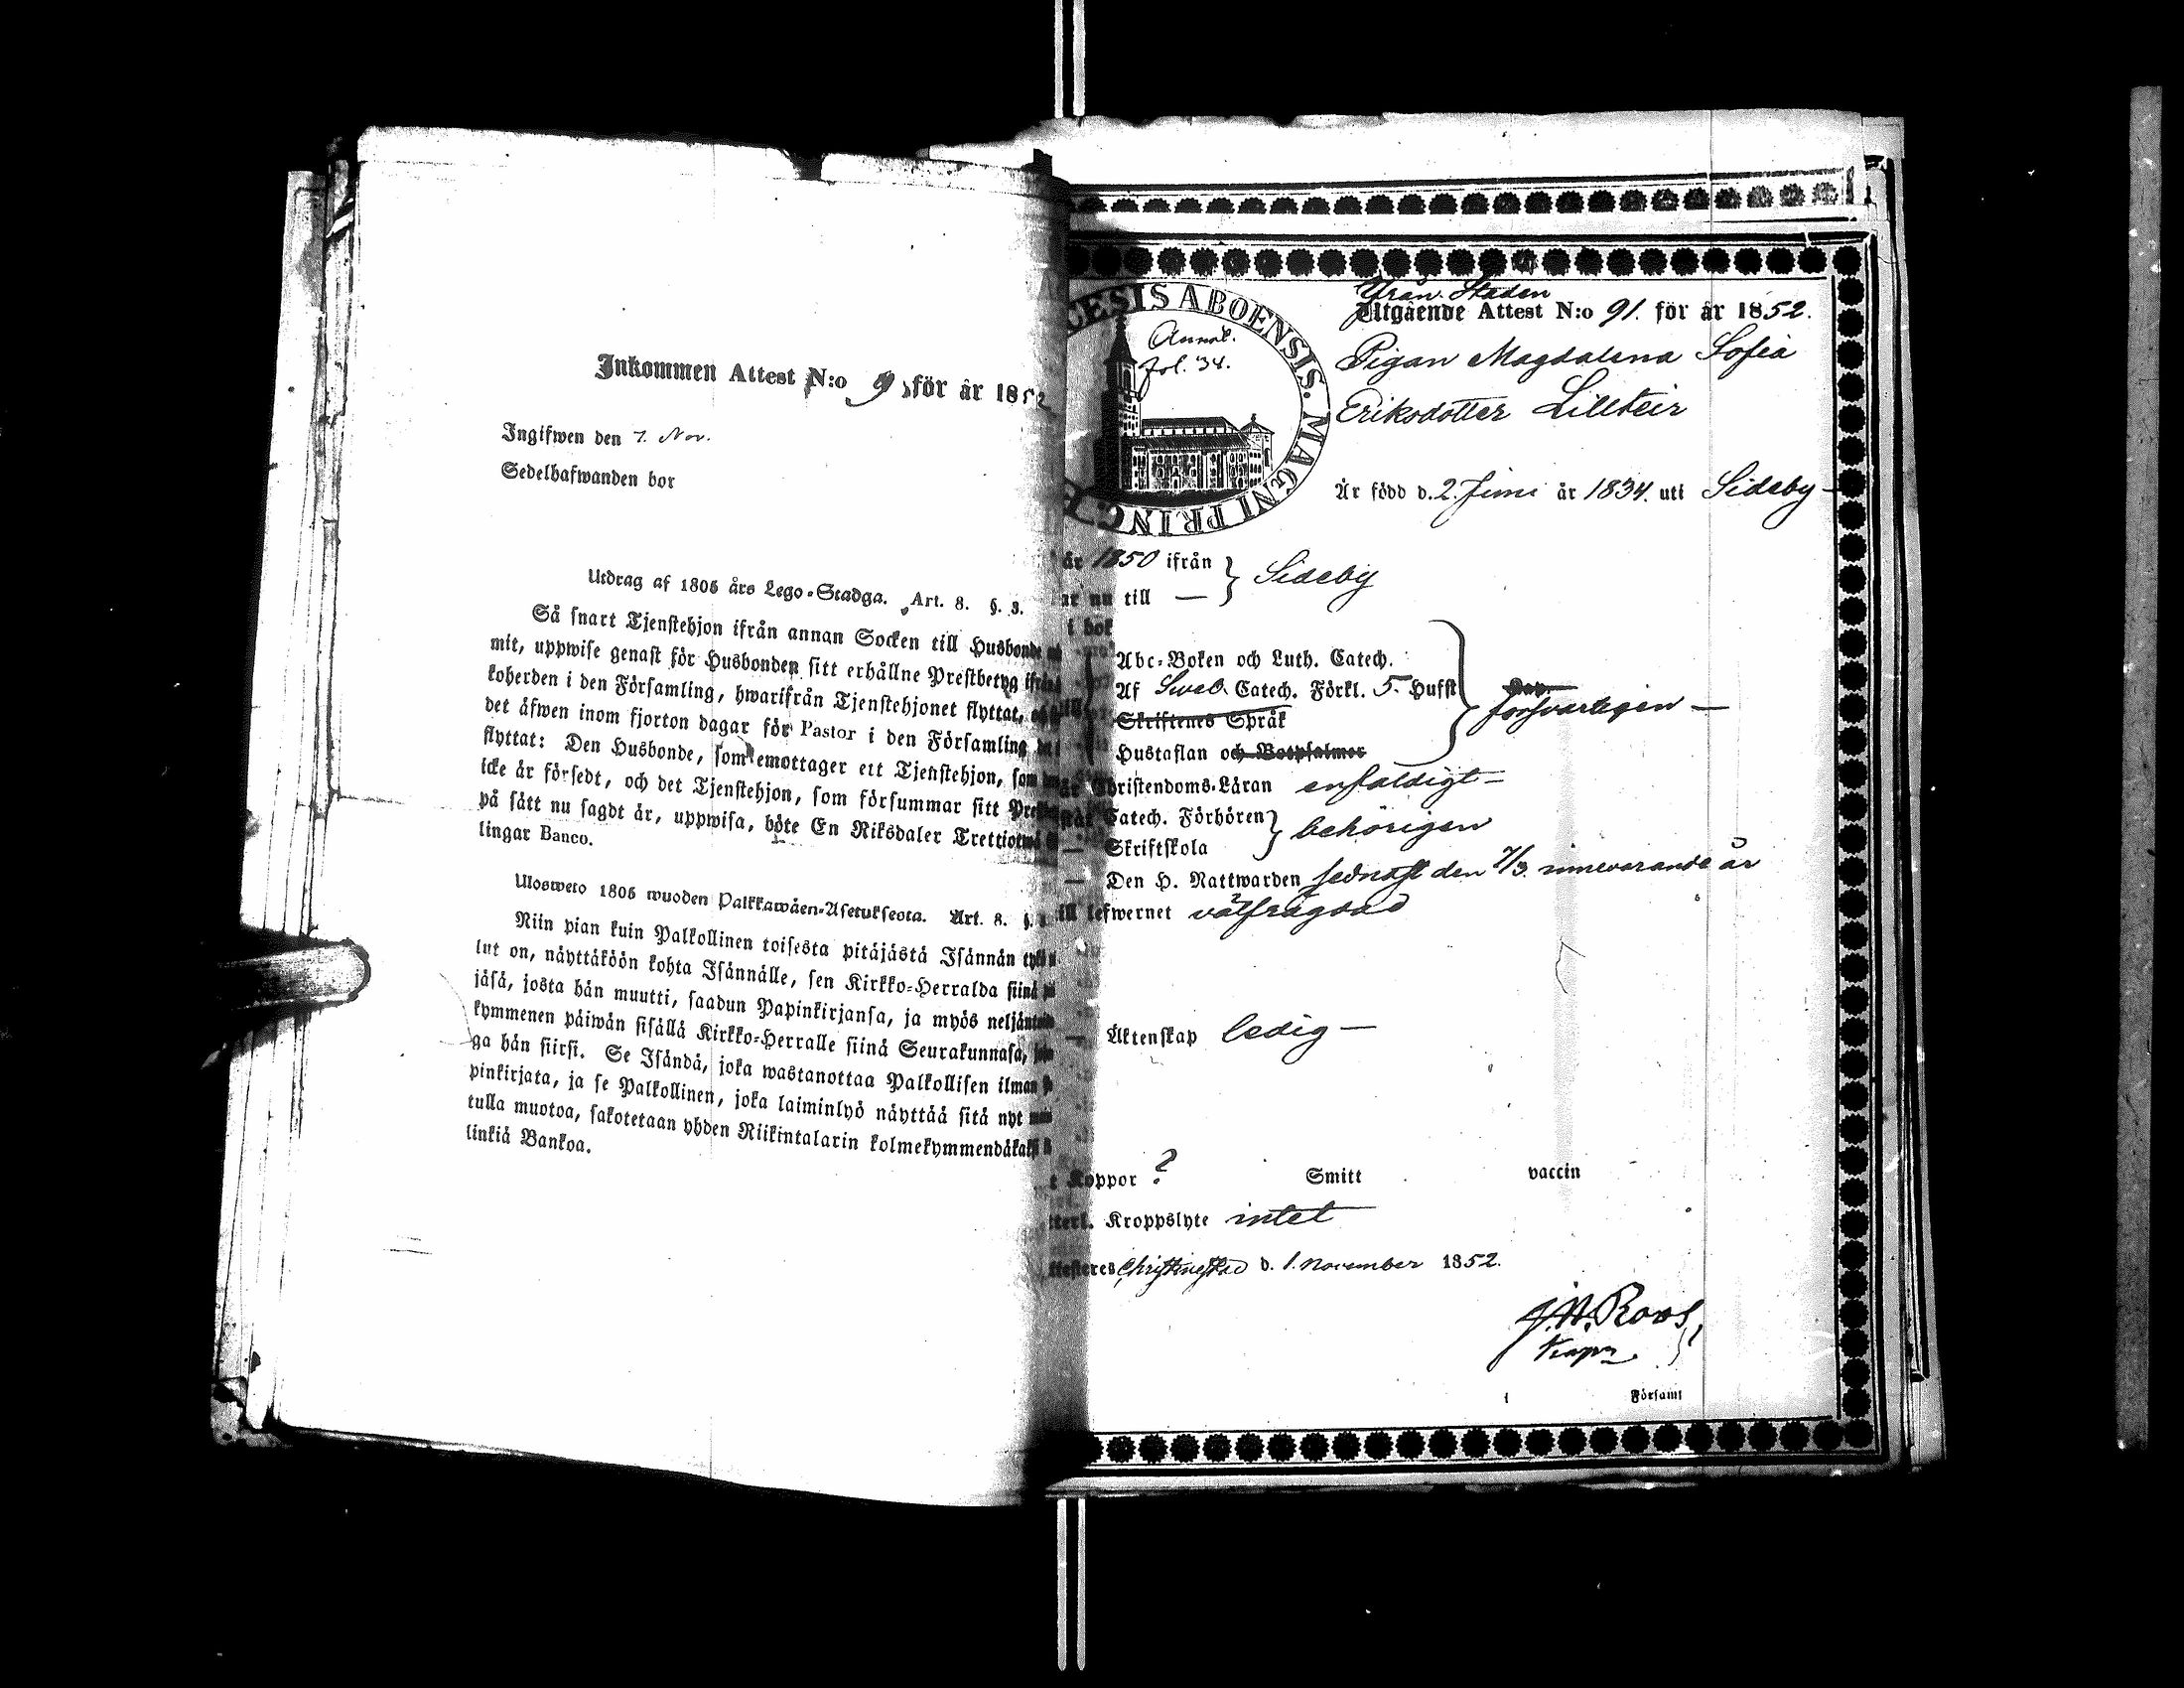 Inkommen Attest N:o 9 för år 1852
Ingifwen den 7. Nov.
Sedelhafwanden bor
Utdrag af 1805 års Lego-Stadga. Art. 8. §. 3.
Så snart Tjenstehjon ifrån annan Socken till Husbonde
mit, uppwise genast för Husbonden sitt erhållne Prestbetyg ifrån
koherden i den Församling, hwarifrån Tjenstehjonet flyttat,
det äfwen inom fjorton dagar för Pastor i den Församling
flyttat: Den Husbonde, som emottager ett Tjenstehjon, som
icke är försedt, och det Tjenstehjon, som försummar sitt
på sätt nu sagdt är, uppwisa, böte En Riksdaler Trettiotwå
lingar Banco.
Ulosweto 1805 wuoden Palkkawäen-Asetuksesta. Art. 8. §.
Niin pian kuin Palkollinen toisesta pitäjästä Isännän tykö
lut on, näyttäköön kohta Isännälle, sen Kirkko-Herralda siinä
jäsä, josta hän muutti, saadun Papinkirjansa, ja myös neljäntoista
kymmenen päiwän sisällä Kirkko-Herralle siinä Seurakunnasa,
ga hän siirsi. Se Isändä, joka wastanottaa Palkollisen ilman
pinkirjata, ja se Palkollinen, joka laiminlyö näyttää sitä nyt
tulla muotoa, sakotetaan yhden Riikintalarin kolmekymmendäkaksi
linkiä Bankoa.
CESIS ABOENSIS. MAGNI PRINC.
Annot.
fol. 34.
Från Staden
Utgående Attest N:o 91. för år 1852.
Pigan Magdalena Sofia
Eriksdotter Lillteir
Är född d. 2. Juni år 1834. uti Sideby
år 1850 ifrån } Sideby
ar nu till —
i bok
Abc-Boken och Luth. Catech.
Af Sveb. Catech. Förkl. 5. Hufst
försvarligen —
Skriftenes Språk
Hustaflan och Botpsalmer
Christendoms-Läran enfaldigt —
Catech. Förhören } behörigen
— Skriftskola
— Den H. Nattwarden sednast den 7/3. innevarande år
till lefwernet välfrägdad
— Äktenskap ledig —
Koppor ? Smitt vaccin
Kroppslyte intet
Christinestad d. 1. November 1852.
J.W. Roos
i Församl